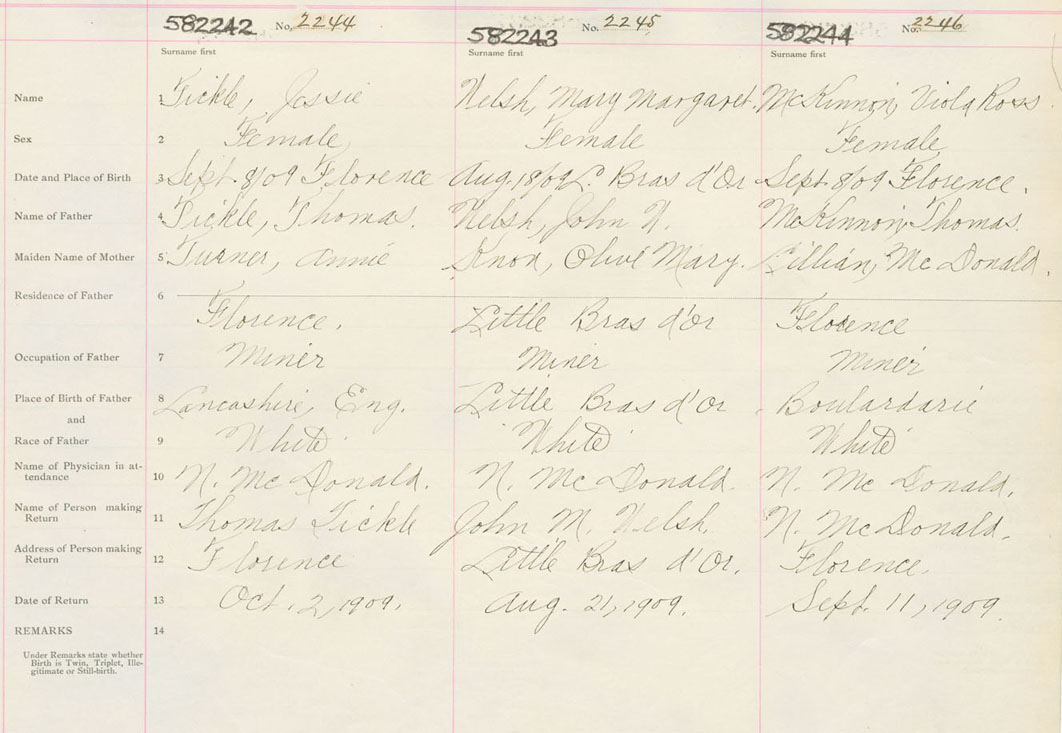 582242 No. 2244 582243 No. 2245 582244 No. 2246
Surname first Surname first Surname first
Name 1 Tickle, Jessie Welsh, Mary Margaret. McKinnon, Viola Ross.
Sex 2 Female Female Female
Date and Place of Birth 3 Sept. 8/09 Florence Aug. 18/09 L. Bras d'Or Sept. 8/09 Florence.
Name of Father 4 Tickle, Thomas. Welsh, John McKinnon, Thomas.
Maiden Name of Mother 5 Turner, Annie Knox, Olive Mary. Lillian, McDonald.
Residence of Father 6
Florence. Little Bras d'Or Florence
Occupation of Father 7 Miner Miner Miner
Place of Birth of Father 8 Lancashire, Eng. Little Bras d'Or Boulardarie
and
Race of Father 9 White White White
Name of Physician in at-
tendance 10 N. McDonald. N. McDonald. N. McDonald.
Name of Person making
Return 11 Thomas Tickle John M. Welsh. N. McDonald.
Address of Person making
Return 12 Florence Little Bras d'Or. Florence.
Date of Return 13 Oct. 2, 1909. Aug. 21, 1909. Sept. 11, 1909.
REMARKS 14
Under Remarks state whether
Birth is Twin, Triplet, Ille-
gitimate or Still-birth.